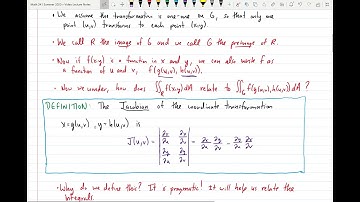 Math 241 Summer 2020 - Video Lecture Notes
• We assume the transformation is one-one on G, so that only one
point (u,v) transforms to each point (x,y).
• We call R the image of G and we call G the preimage of R.
• Now if f(x,y) is a function in x and y, we can also write f as
a function of u and v, f(g(u,v), h(u,v)).
• Now we wonder, how does ∬_R f(x,y) dA relate to ∬_G f(g(u,v),h(u,v)) dA ?
DEFINITION: The Jacobian of the coordinate transformation
x=g(u,v) , y=h(u,v) is
J(u,v) = | ∂x/∂u ∂x/∂v ; ∂y/∂u ∂y/∂v | = ∂x/∂u ∂y/∂v - ∂x/∂v ∂y/∂u
• Why do we define this? It is pragmatic! It will help us relate the
integrals.